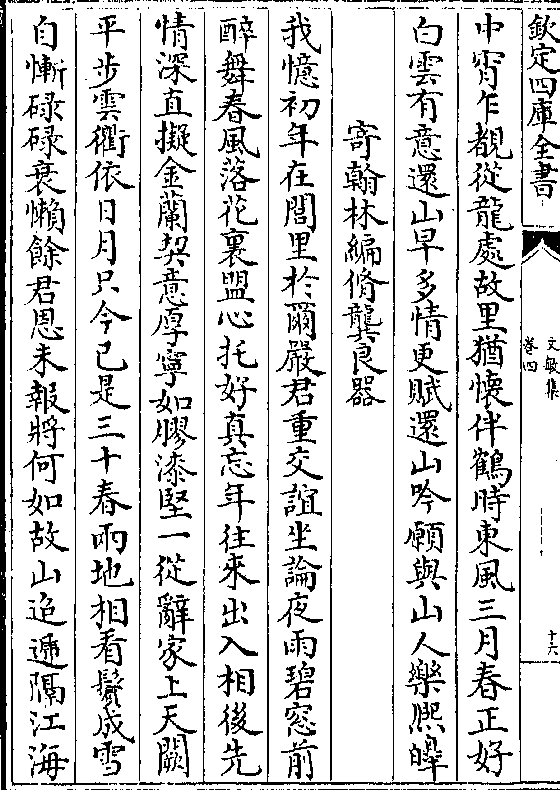 欽定四庫全書
文敏集
卷四
十六
中宵乍覩從龍處故里猶懷伴鶴時東風三月春正好
白雲有意還山早多情更賦還山吟願與山人樂熈皥
寄翰林編脩龔良器
我憶初年在閭里於爾嚴君重交誼坐論夜雨碧窓前
醉舞春風落花裏盟心托好真忘年往來出入相後先
情深直擬金蘭契意厚寧如膠漆堅一從辭家上天闕
平步雲衢依日月只今已是三十春兩地相看鬢成雪
自慚碌碌衰懶餘君恩未報將何如故山迢遞隔江海